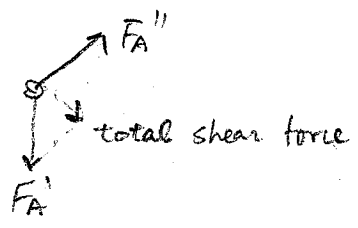 F_A''
total shear force
F_A'